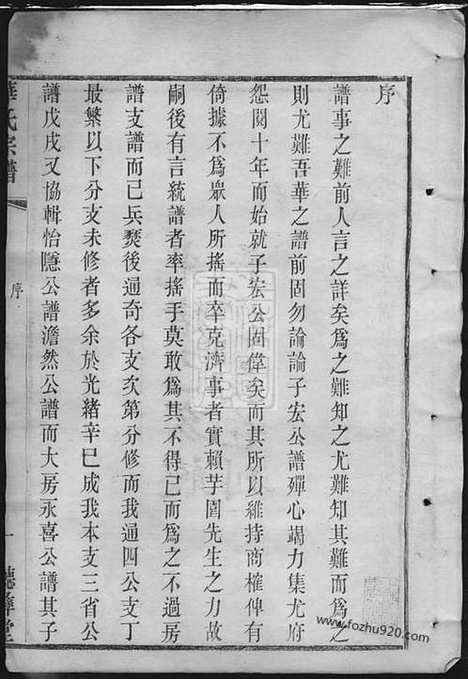 序
譜事之難前人言之詳矣爲之難知之尤難知其難而爲之
則尤難吾華之譜前固勿論論子宏公譜殫心竭力集尤府
怨閱十年而始就子宏公固偉矣而其所以維持商榷俾有
倚據不爲眾人所搖而卒克濟事者實賴芋園先生之力故
嗣後有言統譜者率搖手莫敢爲其不得已而爲之不過房
譜支譜而已兵燹後通奇各支次第分修而我通四公支丁
最繁以下分支未修者多余於光緒辛巳成我本支三省公
譜戊戌又協輯怡隱公譜澹然公譜而大房永喜公譜其子
華氏宗譜
序
一
聽彝堂
www.fozhu920.com